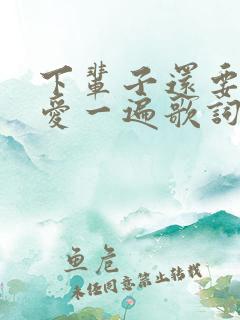 下輩子還要
愛一遍歌詞
鱼危
未经同意禁止转载